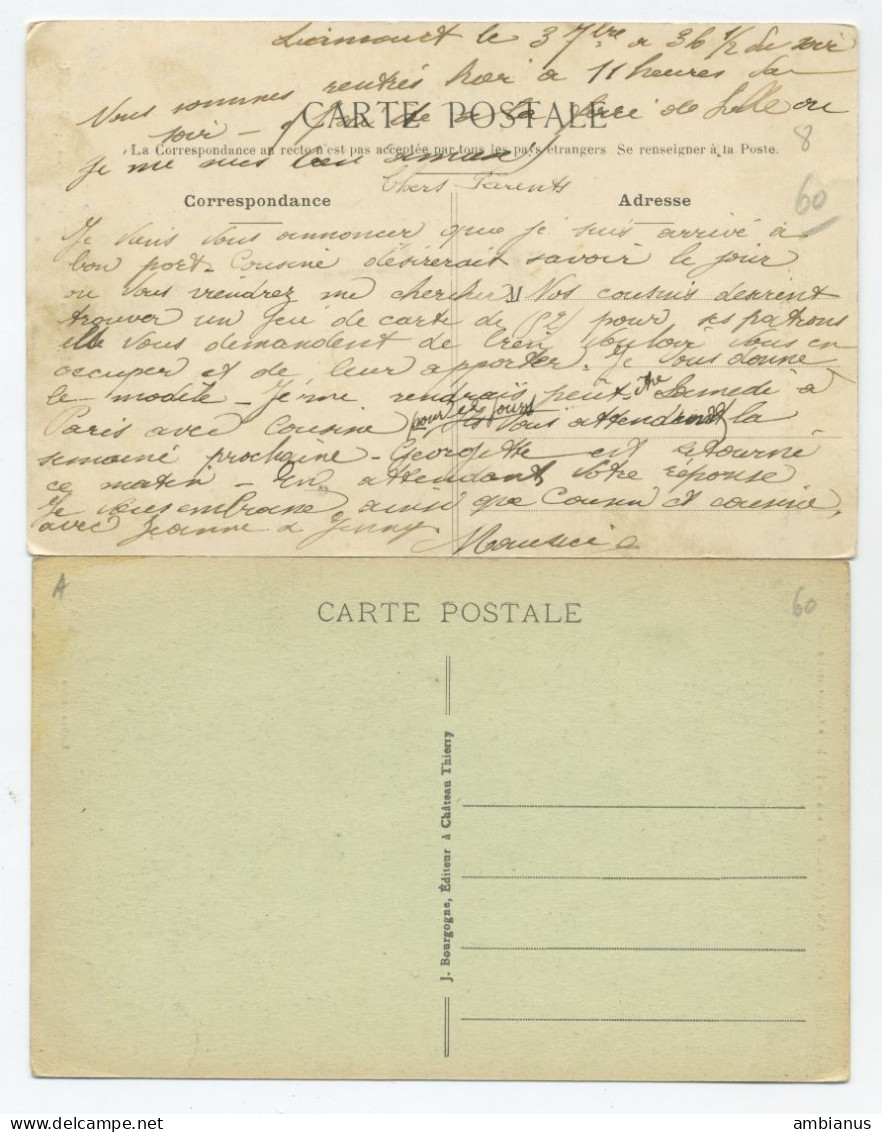 Liancourt le 3 7bre a 3h 1/2 du soir
Nous sommes rentrés hier à 11 heures du
soir - de la de Lille ou
je me suis bien
CARTE POSTALE
8
La Correspondance au recto n'est pas acceptée par tous les pays étrangers Se renseigner à la Poste.
Chers Parents
60
Correspondance
Adresse
Je viens vous annoncer que je suis arrivé à
bon port. Cousine désirerait savoir le jour
ou vous viendrez me chercher M Nos cousins desirent
trouver un jeu de carte de 52 pour ses patrons
elle vous demandent de bien vouloir vous en
occuper et de leur apporter. Je vous donne
le modèle - Je me rendrais peut etre Samedi à
Paris avec Cousine pour jours Ils vous attendront la
semaine prochaine - Georgette est retourné
ce matin - En attendant votre réponse
Je vous embrasse ainsi que Cousin et cousine,
avec Jeanne & Jenny
Maurice
A
CARTE POSTALE
60
J. Bourgogne, Éditeur à Château Thierry
ambianus